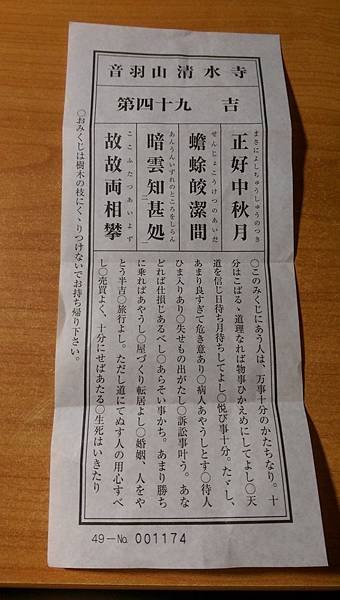 音羽山清水寺
第四十九 吉
まさによしちゅうしゅうのつき
正好中秋月
せんじょこうけつのあいだ
蟾蜍皎潔間
あんうんいずれのところをしらん
暗雲知甚処
ここふたつあいよず
故故両相攀
〇このみくじにあう人は、万事十分のかたちなり。十
分はこぼるゝ道理なれば物事ひかえめにしてよし〇天
道を信じ日待ち月待ちしてよし〇悦び事十分。たゞし、
あまり良すぎて危き意あり〇病人あやうしとす〇待人
ひま入りあり〇失せもの出がたし〇訴訟事叶う。あな
どれば仕損じあるべし〇あらそい事かち。あまり勝ち
に乗ればあやうし〇屋づくり転居よし〇婚姻、人をや
とう半吉〇旅行よし。ただし道にてぬす人の用心すべ
し〇売買よく、十分にせばあたる〇生死はいきたり
〇おみくじは樹木の枝にくゝりつけないでお持ち帰り下さい。
49－No. 001174